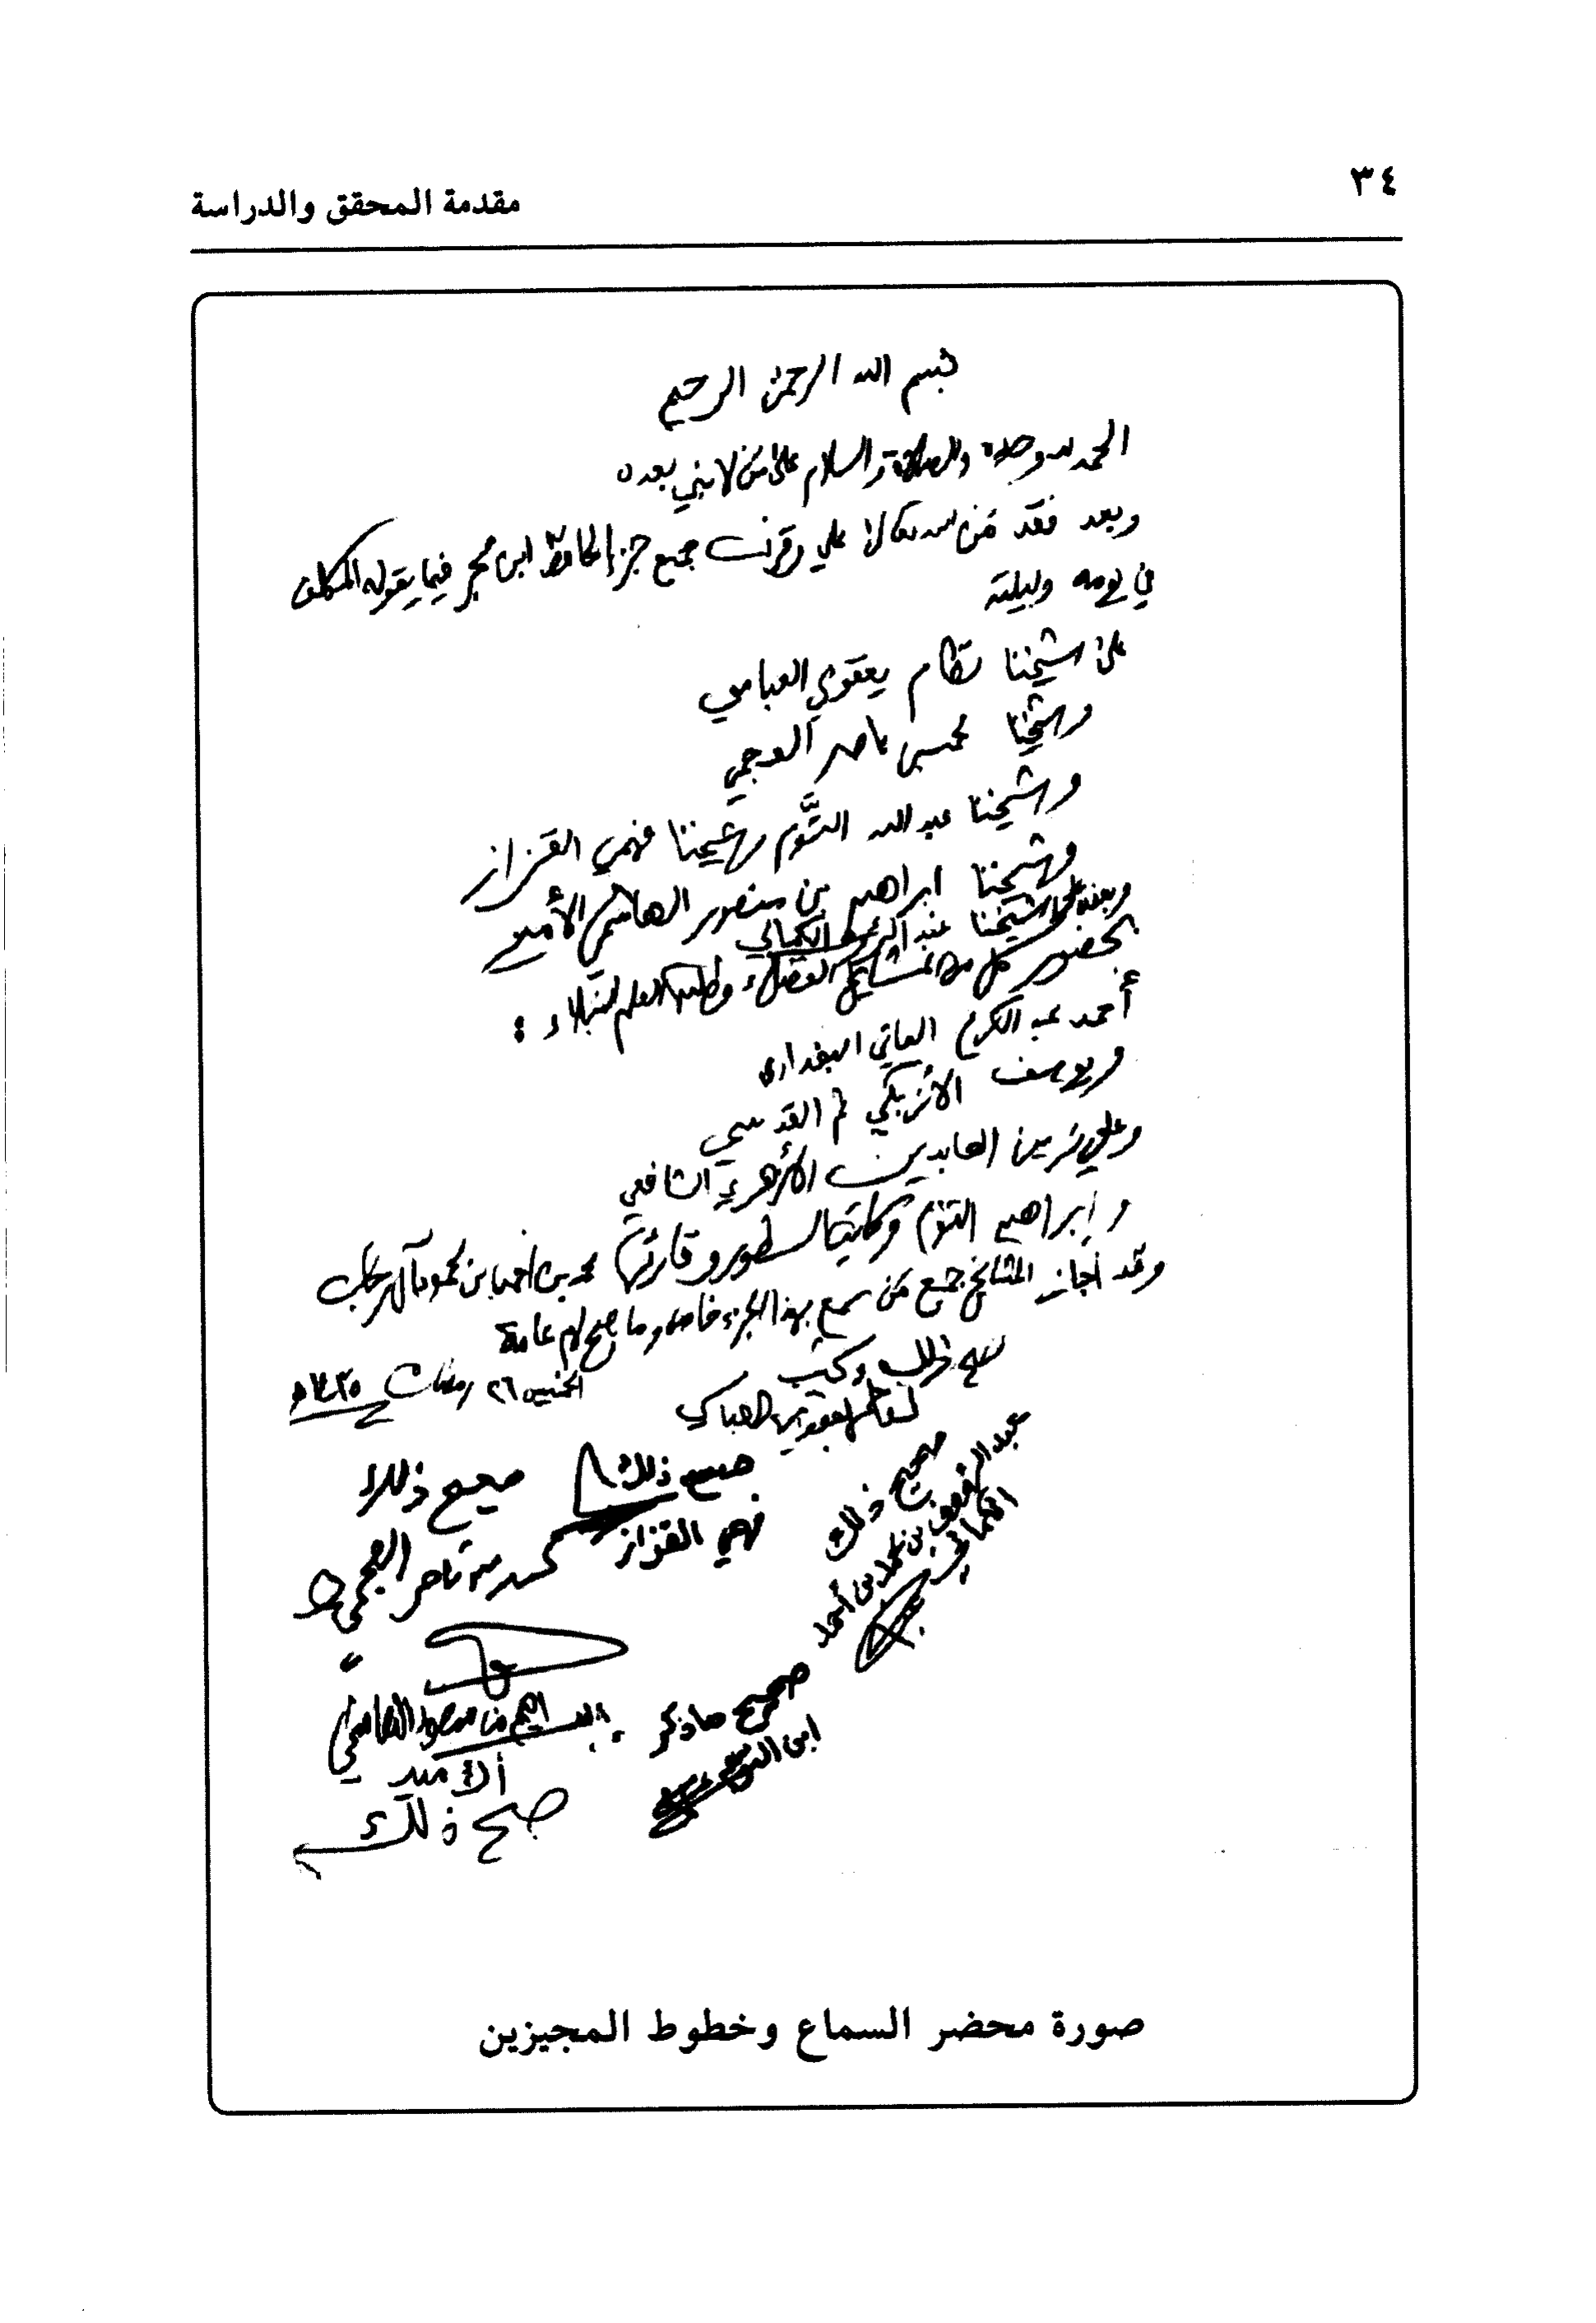 ٣٤
مقدمة المحقق والدراسة
بسم الله الرحمن الرحيم
الحمد لله وحده والصلاة والسلام على من لا نبي بعده
وبعد فقد من الله تعالى علي وقرأت جميع جزء الحافظ ابن حجر فيما يقوله المكلف
في يومه وليلته
على شيخنا نظام يعقوبي العباسي
وشيخنا محمد بن ناصر العجمي
وشيخنا عبد الله التوم وشيخنا فهمي القزاز
وشيخنا ابراهيم بن منصور الهاشمي الأمير
شيخنا عبد الرؤوف الكمالي
بحضور كل من المشايخ الفضلاء وطلبة العلم النبلاء :
أحمد عبد الكريم العاني البغدادي
ويوسف الأزبكي ثم القدسي
وعلي زين العابدين الأزهري الشافعي
وإبراهيم التوم وكاتب السطور وقارئها محمد بن أحمد بن محمود آل رحاب
وقد أجاز المشايخ جميع من سمع بهذا الجزء خاصة وما صح لهم عامة
صح ذلك وكتب
الخميس ٢٦ رمضان ١٤٣٥هـ
نظام يعقوبي العباسي
صحيح ذلك
عبد الرؤوف بن محمد بن أحمد
الكمالي
صح ذلك
فهمي القزاز
صحيح ذلك
محمد بن ناصر العجمي
صحيح ما ذكر
ابن التوم
إبراهيم بن منصور الهاشمي
الأمير
صح ذلك
صورة محضر السماع وخطوط المجيزين